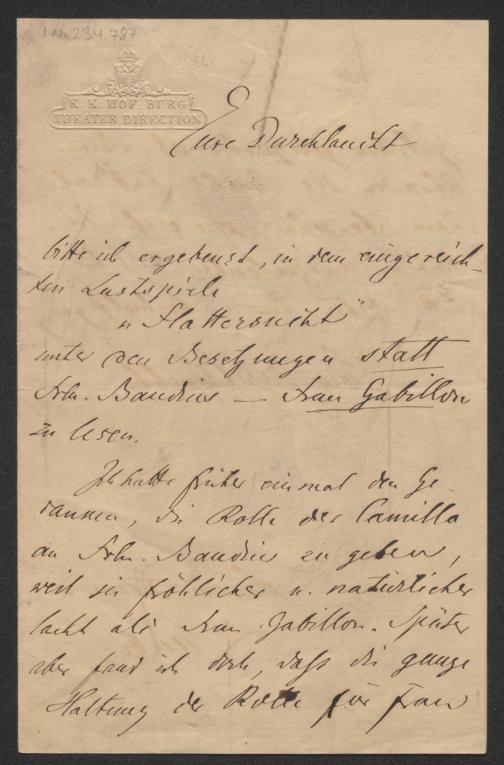 I.N. 234.787
K. K. HOF-BURG
THEATER DIRECTION
Eure Durchlaucht
bitte ich ergebenst, in dem eingereich-
ten Lustspiele
"Flattersucht"
unter den Besetzungen statt
Frln. Baudius — Frau Gabillon
zu lesen.
Ich hatte früher einmal den Ge-
danken, die Rolle der Camilla
an Frln. Baudius zu geben,
weil sie fröhlicher u. natürlicher
lacht als Frau Gabillon. Später
aber fand ich doch, daß die ganze
Haltung der Rolle für Frau